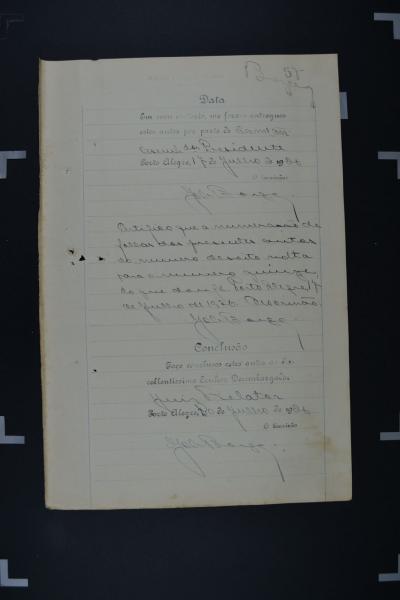 57
Data
Em meu cartorio, me foram entregues
estes autos por parte do
do Presidente
Porto Alegre, 17 de Julho de 1936
O Escrivão
Certifico que a numeração de
folhas dos presentes autos
do numero dezoito volta
para o numero quinze,
do que dou fé. Porto Alegre, 17
de Julho de 1936. O Escrivão
Conclusão
Faço conclusos estes autos ao Ex-
cellentissimo Senhor Desembargador
Juiz Relator
Porto Alegre, 20 de Julho de 1936
O Escrivão